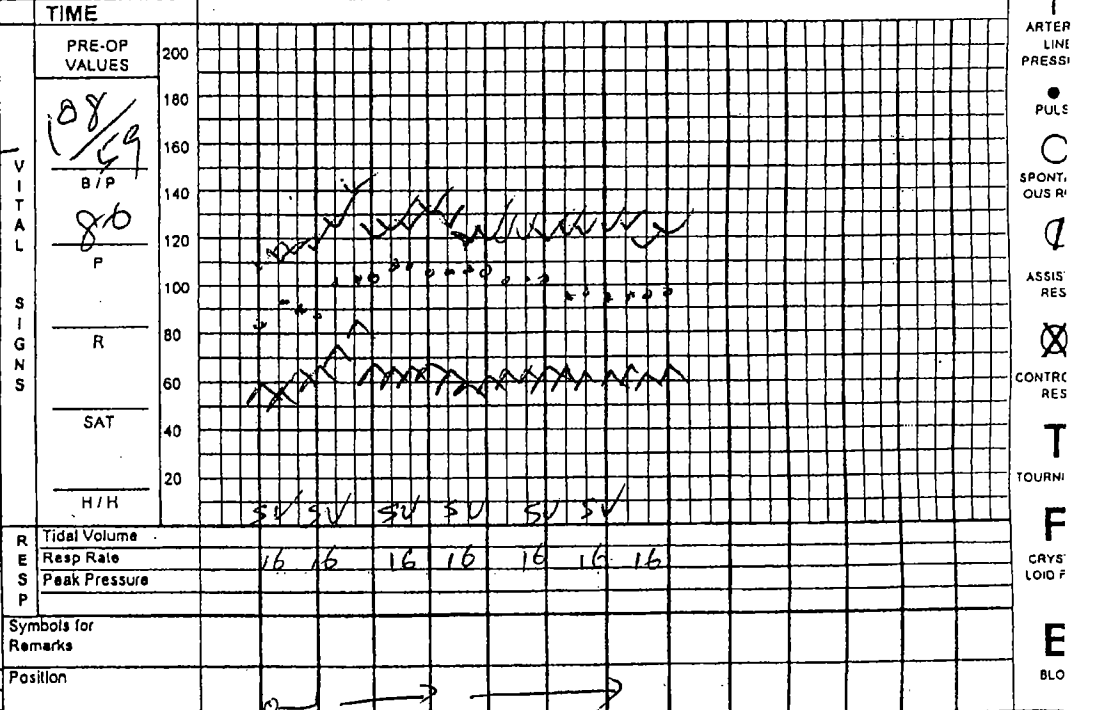 TIME
PRE-OP
VALUES
108/59
B / P
80
P
R
SAT
H / H
VITAL SIGNS
200
180
160
140
120
100
80
60
40
20
SV SV SV SV SV SV
RESP
Tidal Volume
Resp Rate 16 16 16 16 16 16 16
Peak Pressure
Symbols for
Remarks
Position
ARTER
LINE
PRESS
PULS
SPONT
OUS R
ASSIS
RES
CONTRO
RES
T
TOURNI
F
CRYS
LOID F
E
BLO